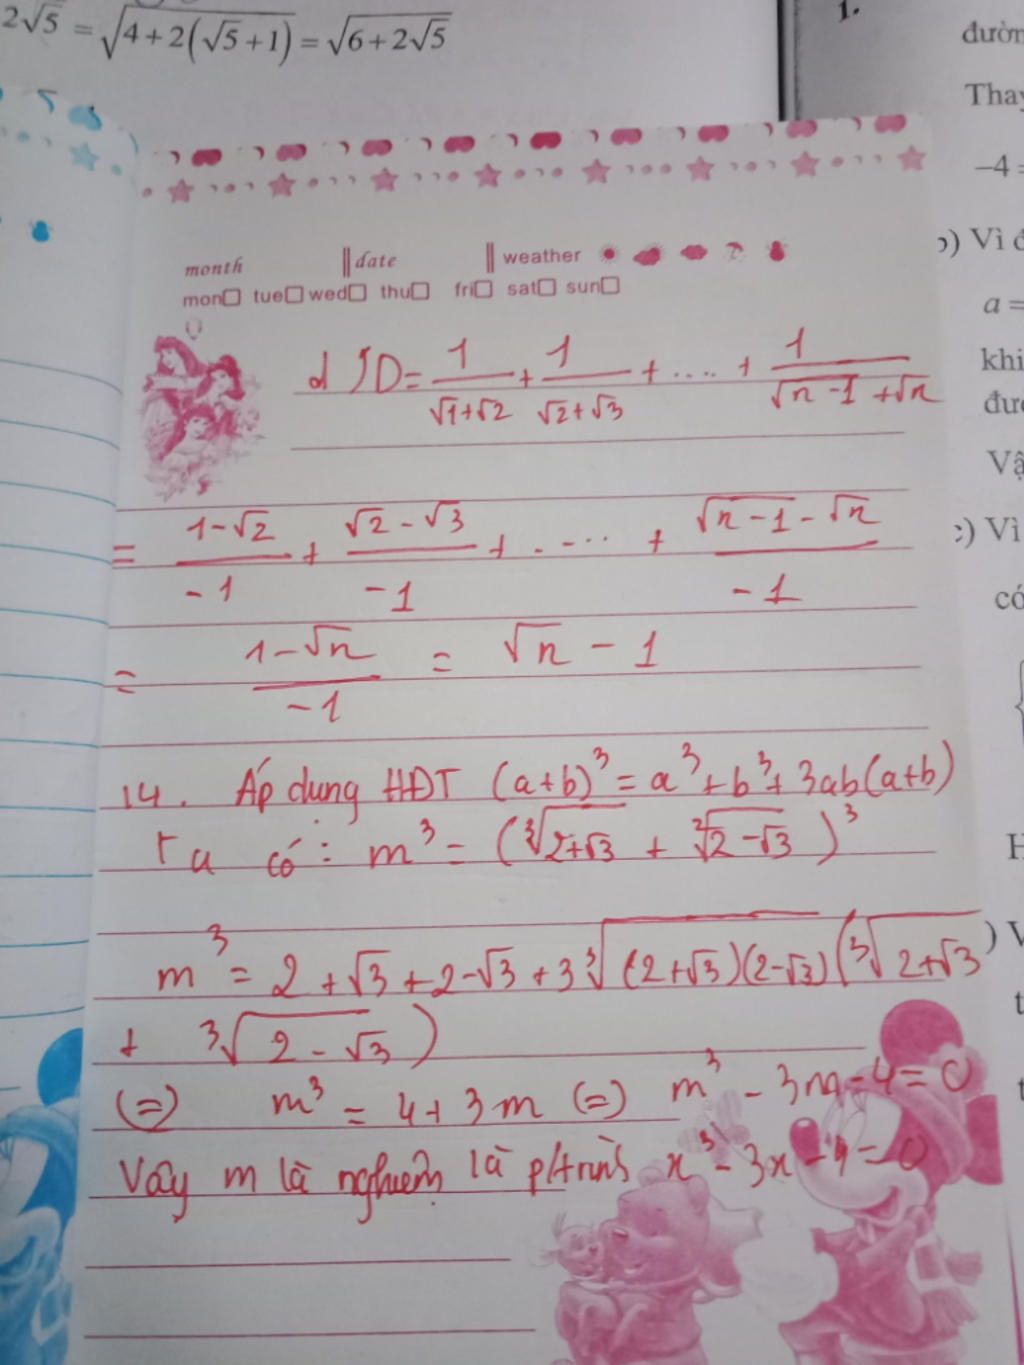 2√5 = √(4+2(√5+1)) = √(6+2√5)
1.
đườn
Thay
−4 =
b) Vì đ
a =
khi
đượ
Vậ
c) Vì
có
month date weather
mon□ tue□ wed□ thu□ fri□ sat□ sun□
d) D = 1/(√1+√2) + 1/(√2+√3) + .... + 1/(√(n-1) + √n)
= (1-√2)/(-1) + (√2-√3)/(-1) + ..... + (√(n-1) - √n)/(-1)
= (1-√n)/(-1) = √n - 1
14. Áp dụng HĐT (a+b)³ = a³+b³+3ab(a+b)
Ta có: m³ = (∛(2+√3) + ∛(2-√3))³
m³ = 2+√3+2-√3+3∛((2+√3)(2-√3)) (∛(2+√3)
+ ∛(2-√3))
(=) m³ = 4+3m (=) m³ - 3m - 4 = 0
Vậy m là nghiệm là p/trình x³ - 3x - 4 = 0